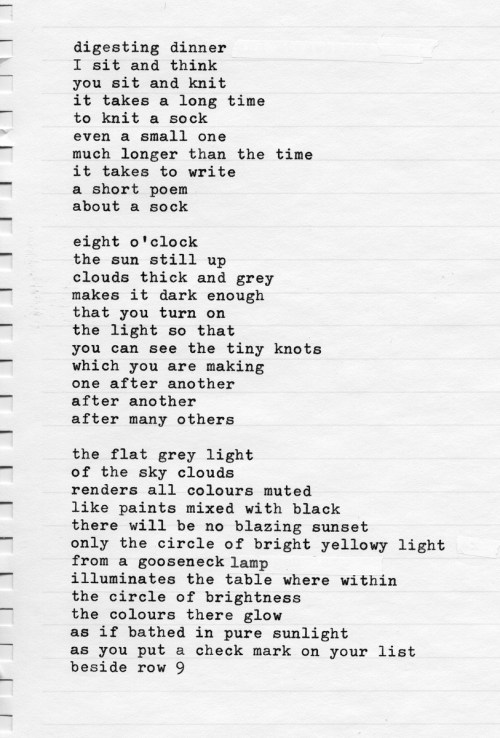 digesting dinner
I sit and think
you sit and knit
it takes a long time
to knit a sock
even a small one
much longer than the time
it takes to write
a short poem
about a sock

eight o'clock
the sun still up
clouds thick and grey
makes it dark enough
that you turn on
the light so that
you can see the tiny knots
which you are making
one after another
after another
after many others

the flat grey light
of the sky clouds
renders all colours muted
like paints mixed with black
there will be no blazing sunset
only the circle of bright yellowy light
from a gooseneck lamp
illuminates the table where within
the circle of brightness
the colours there glow
as if bathed in pure sunlight
as you put a check mark on your list
beside row 9